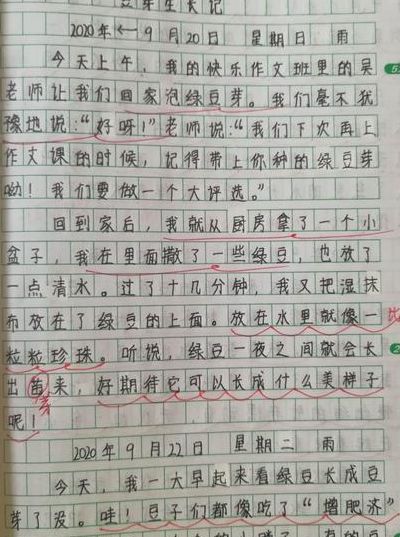 豆芽生长记
2020年←9月20日 星期日 雨
今天上午，我的快乐作文班里的吴
老师让我们回家泡绿豆芽。我们毫不犹
豫地说：“好呀！”老师说：“我们下次再上
作文课的时候，记得带上你种的绿豆芽
呦！我们要做一个大评选。”
回到家后，我就从厨房拿了一个小
盆子，我在里面撒了一些绿豆，也放了
一点清水。过了十几分钟，我又把湿抹
布放在了绿豆的上面。放在水里就像一
粒粒珍珠。听说，绿豆一夜之间就会长
出来，好期待它可以长成什么美样子
芽
呢！
2020年9月22日 星期二 雨
今天，我一大早起来看绿豆长成豆
芽了没。哇！豆子们都像吃了“增肥济”